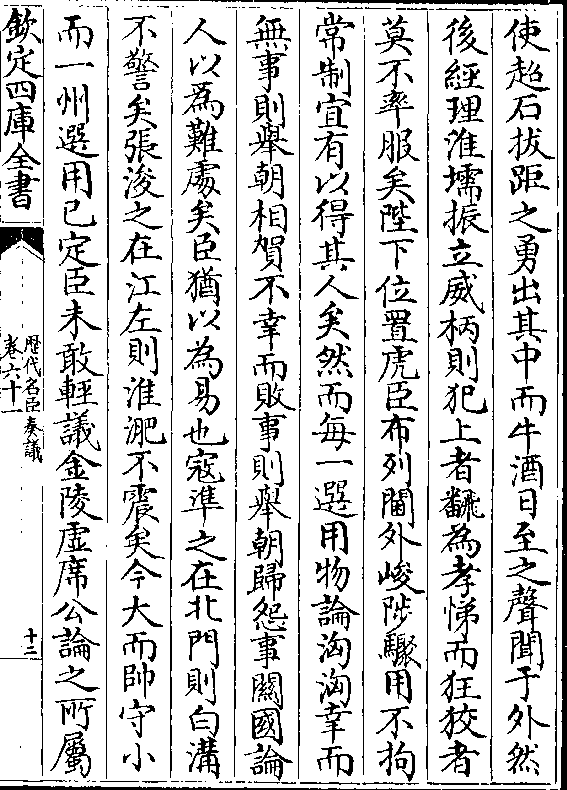 使超石拔距之勇出其中而牛酒日至之聲聞于外然
後經理淮壖振立威柄則犯上者飜為孝悌而狂狡者
莫不率服矣陛下位置虎臣布列閫外峻陟驟用不拘
常制宜有以得其人矣然而每一選用物論洶洶幸而
無事則舉朝相賀不幸而敗事則舉朝歸怨事闗國論
人以為難處矣臣猶以為易也寇準之在北門則白溝
不警矣張浚之在江左則淮淝不震矣今大而帥守小
而一州選用已定臣未敢輕議金陵虚席公論之所屬
欽定四庫全書
歴代名臣奏議
卷六十一
十二